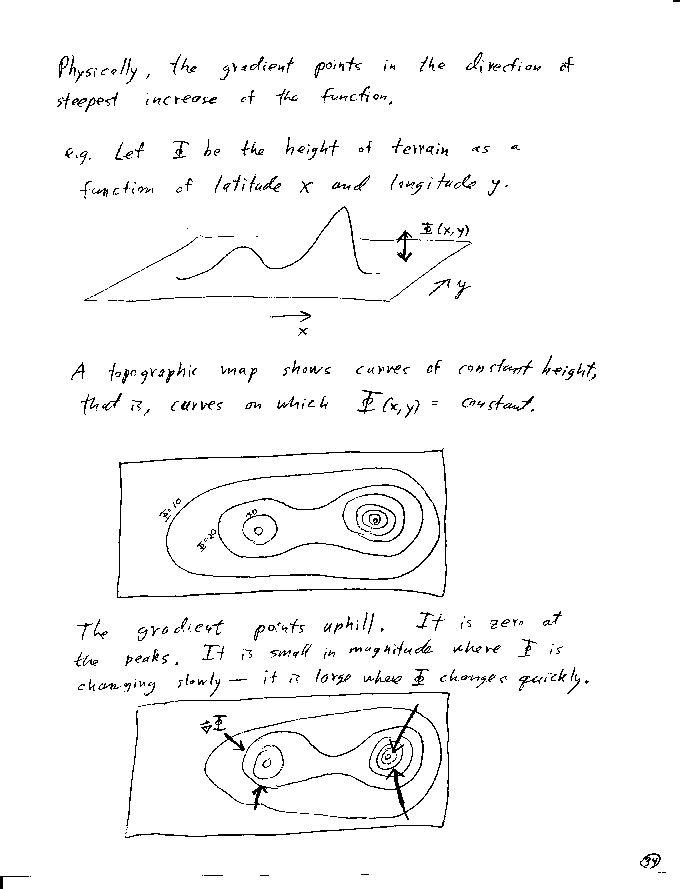 Physically, the gradient points in the direction of
steepest increase of the function.
e.g. Let Φ be the height of terrain as a
function of latitude x and longitude y.
Φ(x,y)
y
x
A topographic map shows curves of constant height,
that is, curves on which Φ(x,y) = constant.
Φ=10
Φ=20
30
The gradient points uphill. It is zero at
the peaks. It is small in magnitude where Φ is
changing slowly — it is large where Φ changes quickly.
∇Φ
34